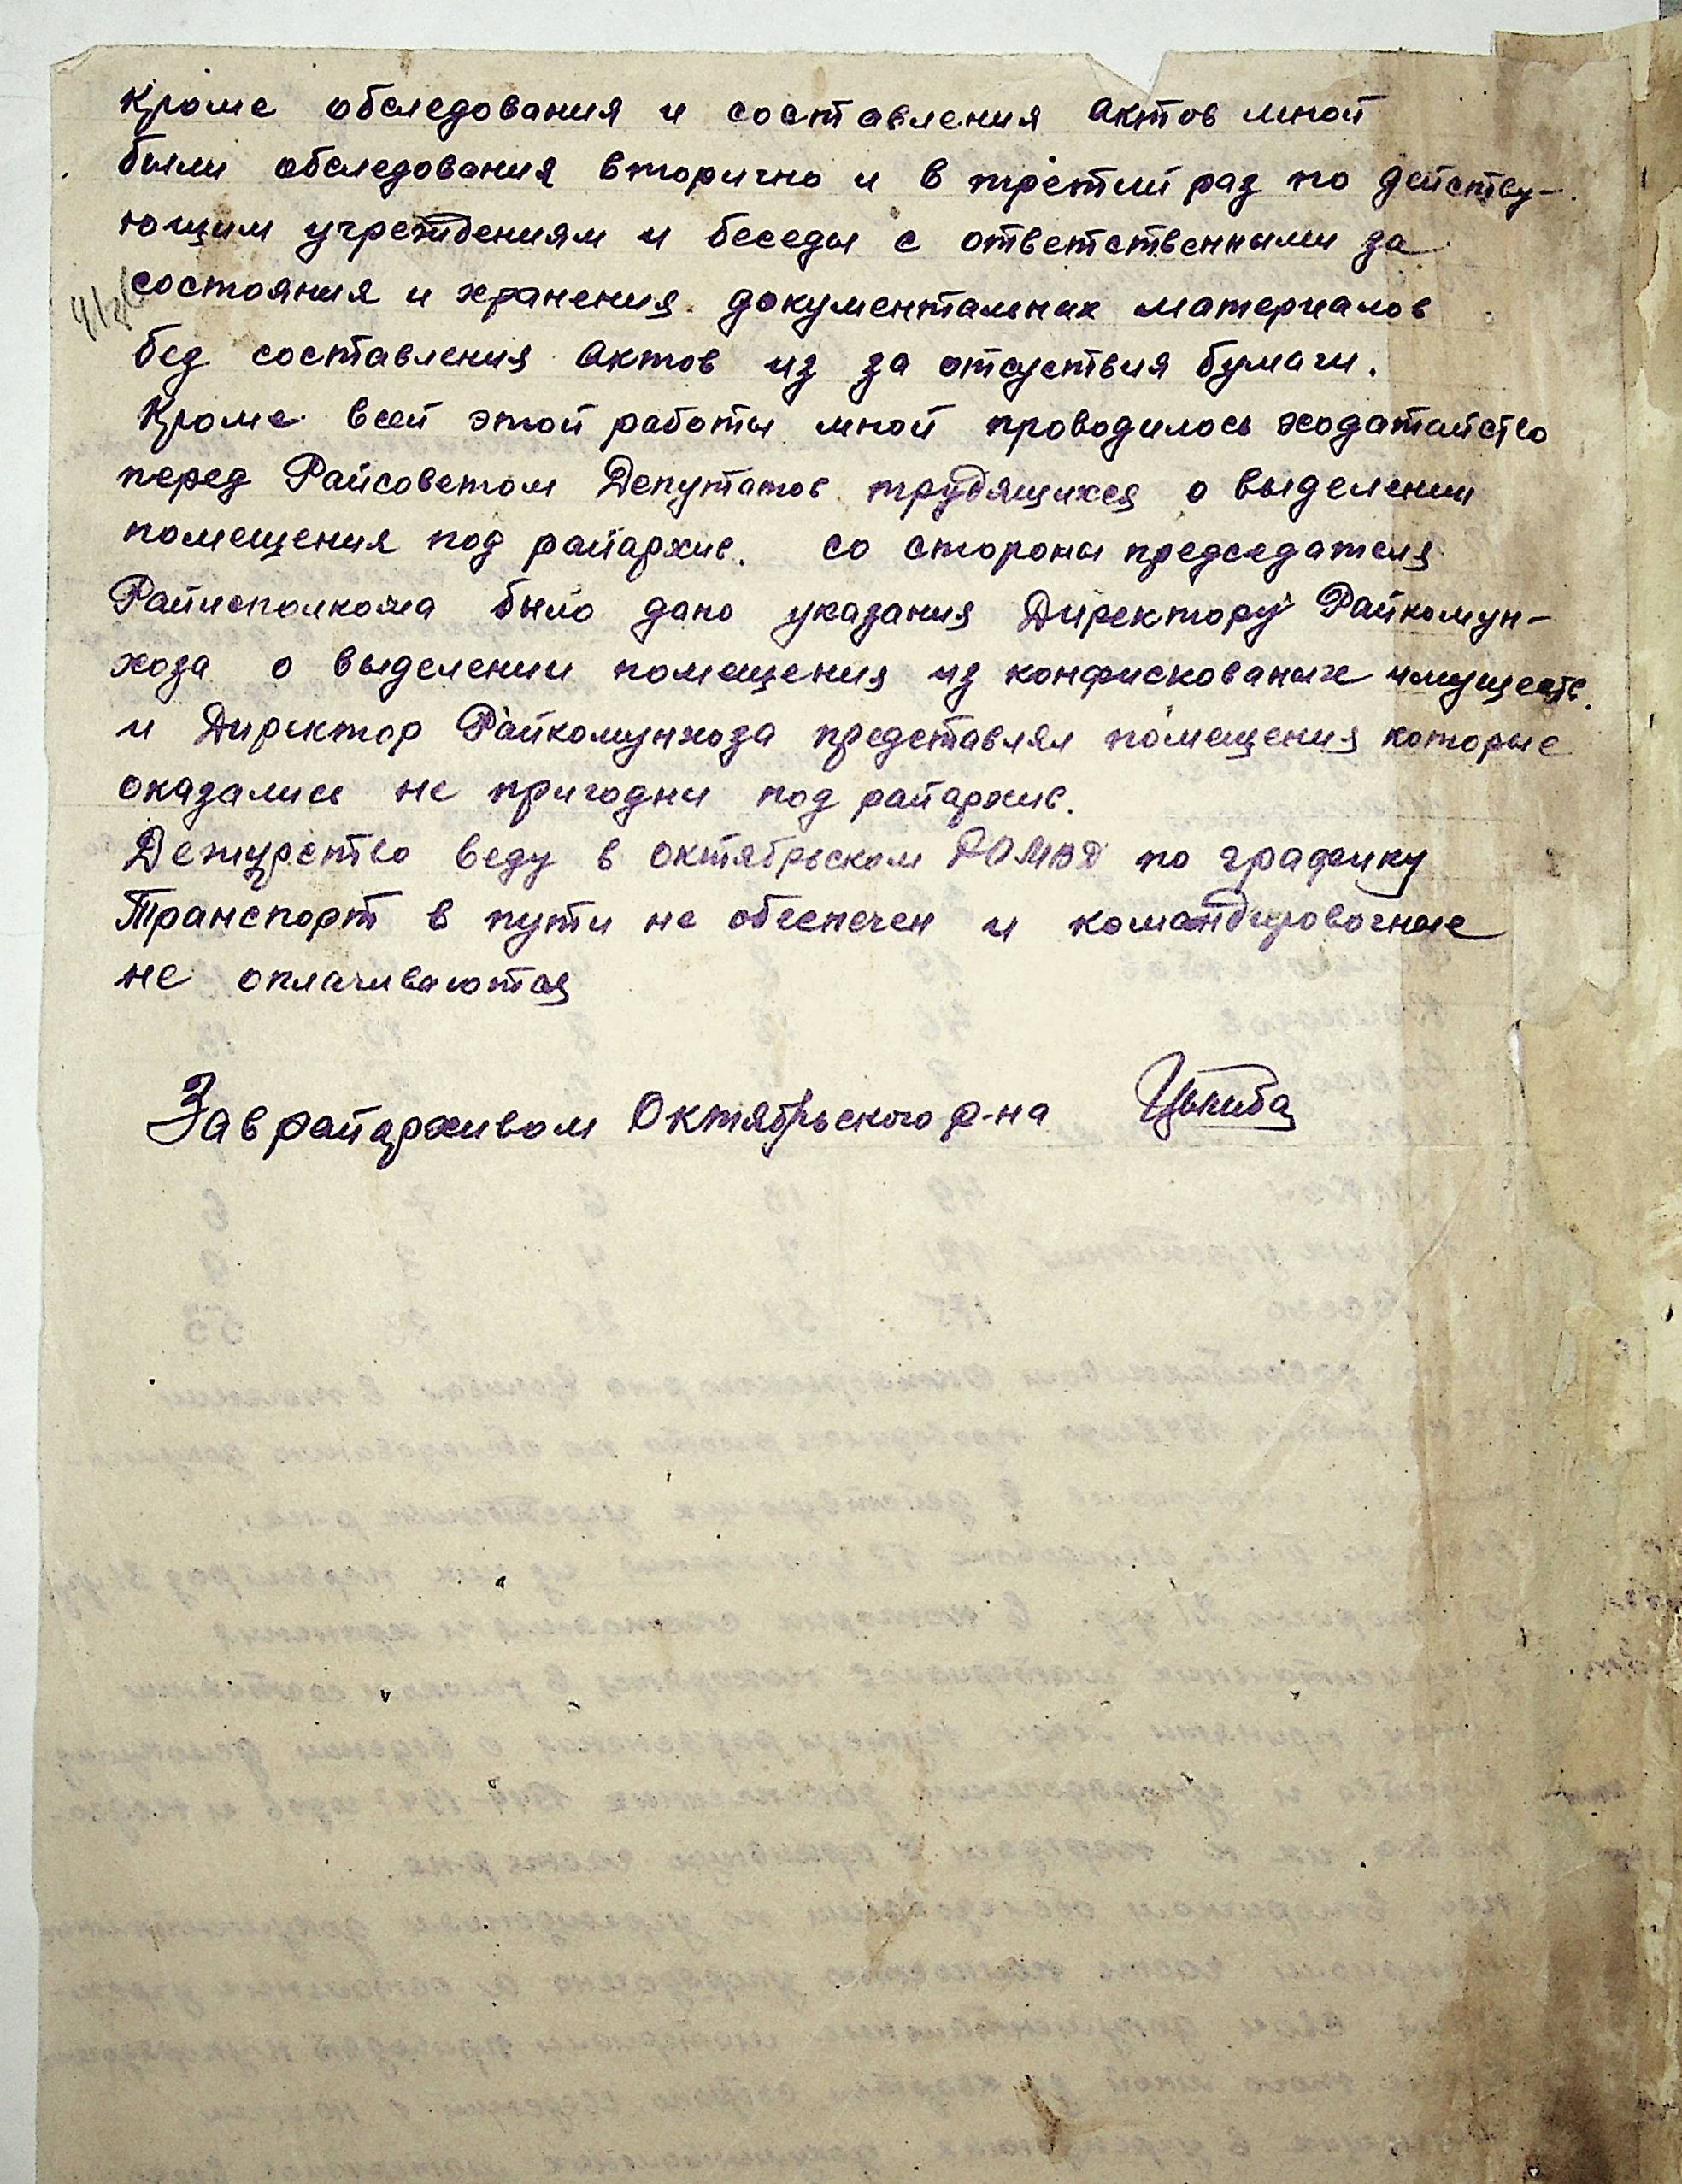 Кроме обследования и составления актов мной
были обследования вторично и в третий раз по действу-
ющим учреждениям и беседы с ответственными за
состояния и хранения документальных материалов
без составления актов из за отсуствия бумаги.
Кроме всей этой работы мной проводилось ходатайство
перед Райсоветом Депутатов трудящихся о выделении
помещения под райархив. со стороны председателя
Райисполкома было дано указания Директору Райкомун-
хоза о выделении помещения из конфискованых имуществ.
и Директор Райкомунхоза представлял помещения которые
оказались не пригодны под райархив.
Дежурство веду в октябрьском РОМВД по графику
Транспорт в пути не обеспечен и командировочные
не оплачиваются
Зав райархивом Октябрьского р-на